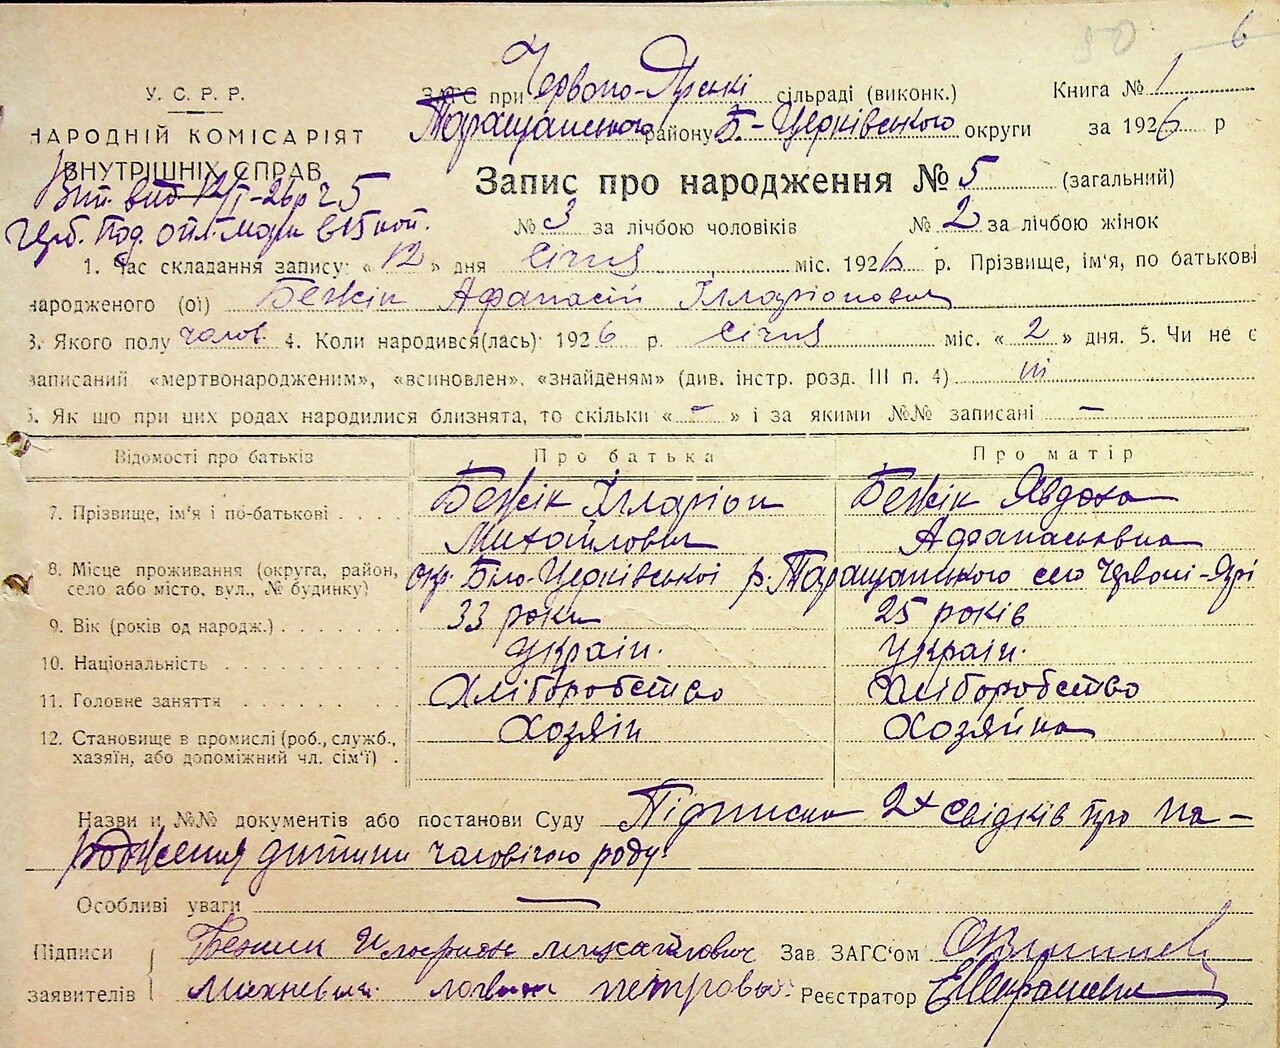 50 6
У. С. Р. Р.
НАРОДНІЙ КОМІСАРІЯТ
ВНУТРІШНІХ СПРАВ
Вип. вид 12/I-26р ч 5
Герб. под. опл. марк в 15 коп.
ЗАГС при Червоно-Ярські сільраді (виконк.) Книга № 1
Таращанського району Б.-Церківського округи за 1926 р
Запис про народження № 5 (загальний)
№ 3 за лічбою чоловіків № 2 за лічбою жінок
1. Час складання запису: « 12 » дня Січня міс. 1926 р. Прізвище, ім'я, по батькові
народженого (ої) Бежік Афанасій Ілларіонович
3. Якого полу чолов. 4. Коли народився(лась) 1926 р. Січня міс. « 2 » дня. 5. Чи не є
записаний «мертвонародженим», «всиновлен», «знайденям» (див. інстр. розд. III п. 4) ні
6. Як що при цих родах народилися близнята, то скільки « - » і за якими №№ записані —
Відомості про батьків Про батька Про матір
7. Прізвище, ім'я і по-батькові Бежік Ілларіон Бежік Явдоха
Михайлович Афанасьевна
8. Місце проживання (округа, район, окр. Біло-Церківської р. Таращанського село Червоні-Ярі
село або місто, вул., № будинку)
9. Вік (років од народж.) 33 роки 25 років
10. Національність Україн. Україн.
11. Головне заняття Хліборобство Хліборобство
12. Становище в промислі (роб., служб., Хозяін Хозяйка
хазяїн, або допоміжний чл. сім'ї)
Назви и №№ документів або постанови Суду Підписка 2х свідків про на-
родження дитини чоловічого роду.
Особливі уваги —
Підписи Бежик Илларион Михайлович Зав. ЗАГС'ом
заявителів Петрович Реєстратор